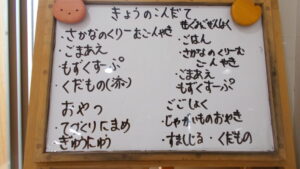 きょうのこんだて
さかなのくりーむこーんやき
・ごまあえ
・もずくすーぷ
・くだもの
おやつ
・てづくりにまめ
ぎゅうにゅう
・ごはん
・さかなのくりーむ
こーんやき
・ごまあえ
・もずくすーぷ
ごごしょく
・じゃがいものおやき
・すましじる ・くだもの